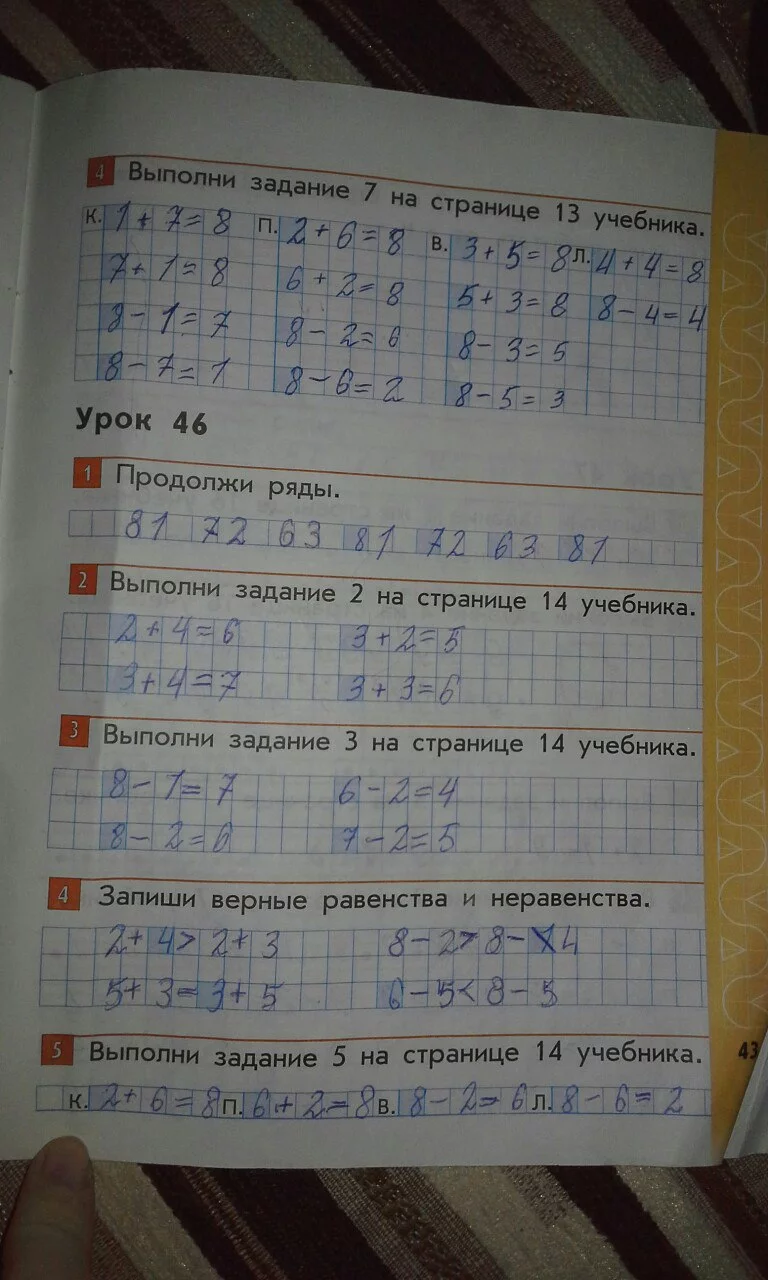 4 Выполни задание 7 на странице 13 учебника.
К. 1 + 7 = 8 П. 2 + 6 = 8 В. 3 + 5 = 8 Л. 4 + 4 = 8
7 + 1 = 8 6 + 2 = 8 5 + 3 = 8 8 - 4 = 4
8 - 1 = 7 8 - 2 = 6 8 - 3 = 5
8 - 7 = 1 8 - 6 = 2 8 - 5 = 3
Урок 46
1 Продолжи ряды.
81 72 63 81 72 63 81
2 Выполни задание 2 на странице 14 учебника.
2 + 4 = 6 3 + 2 = 5
3 + 4 = 7 3 + 3 = 6
3 Выполни задание 3 на странице 14 учебника.
8 - 1 = 7 6 - 2 = 4
8 - 2 = 6 7 - 2 = 5
4 Запиши верные равенства и неравенства.
2 + 4 > 2 + 3 8 - 2 > 8 - 4
5 + 3 = 3 + 5 6 - 5 < 8 - 5
5 Выполни задание 5 на странице 14 учебника.
43
К. 2 + 6 = 8 П. 6 + 2 = 8 В. 8 - 2 = 6 Л. 8 - 6 = 2